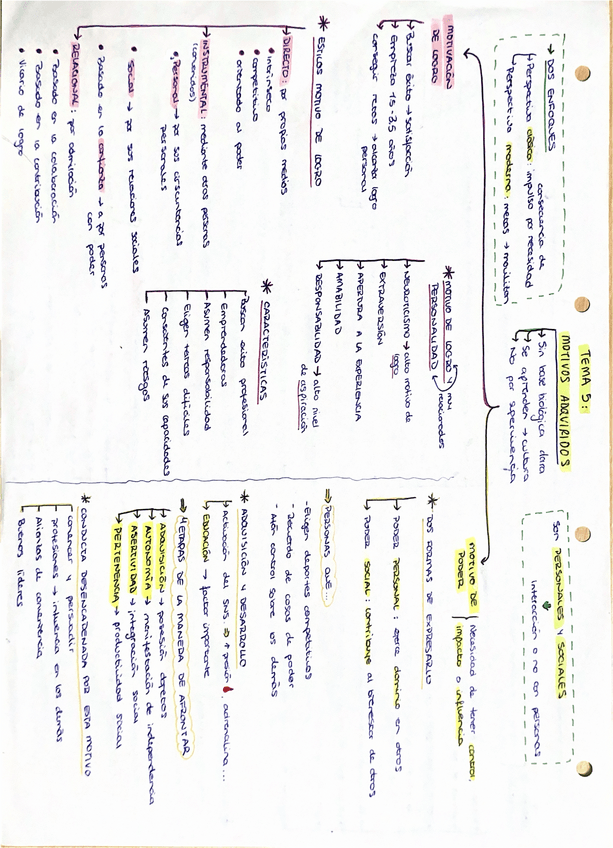 TEMA 5:
MOTIVOS ADQUIRIDOS
→ Sin base biológica clara
→ Se aprenden → cultura
→ No por supervivencia
→ DOS ENFOQUES
consecuencia de
→ Perspectiva clásica: impulso por necesidad
→ Perspectiva moderna: metas →
Son PERSONALES y SOCIALES
Interacción o no con personas
MOTIVACIÓN
DE LOGRO
→ Buscar éxito → satisfacción
→ Empieza 1'5 - 3'5 años
→ conseguir retos → alcanza logro
personal
* ESTILOS MOTIVO DE LOGRO
→ DIRECTO: por propios medios
• intrínseco
• competitivo
• orientado al poder
→ INSTRUMENTAL: mediante otras personas
• Personal → por sus circunstancias
personales
• Social → por sus relaciones sociales
• Basado en la confianza → a por personas
con poder
→ RELACIONAL: por
• Basado en la colaboración
• Basado en la contribución
• Vicario de logro
* MOTIVO DE LOGRO Y
PERSONALIDAD
muy
relacionados
→ NEUROTICISMO → alto motivo de
logro
→ EXTRAVERSIÓN
→ APERTURA A LA EXPERIENCIA
→ AMABILIDAD
→ RESPONSABILIDAD → alto nivel
de aspiración
* CARACTERÍSTICAS
Buscan éxito profesional
Emprendedoras
Asumen responsabilidad
Eligen tareas difíciles
Conscientes de sus capacidades
Asumen riesgos
MOTIVO DE
PODER
Necesidad de tener control,
impacto o influencia
* DOS FORMAS DE EXPRESARLO
→ PODER PERSONAL: ejerce dominio en otros
→ PODER SOCIAL: contribuye al bienestar de otros
⇒ PERSONAS QUE...
- Eligen deportes competitivos
- Recuerdo de cosas de poder
- + control sobre los demás
* ADQUISICIÓN Y DESARROLLO
→ Activación del SNS ⇒ + presión, adrenalina...
→ EDUCACIÓN → factor importante
⇒ METADAS DE LA MANERA DE AFRONTAR
→ ADQUISICIÓN → posesión objetos
→ AUTONOMÍA → manifestación de independencia
→ ASERTIVIDAD → integración social
→ PERTENENCIA → productividad social
* CONDUCTA DESENCADENADA POR ESTE MOTIVO
convencer y persuadir
profesiones → influencia en los demás
Alianzas de conveniencia
Buenos líderes